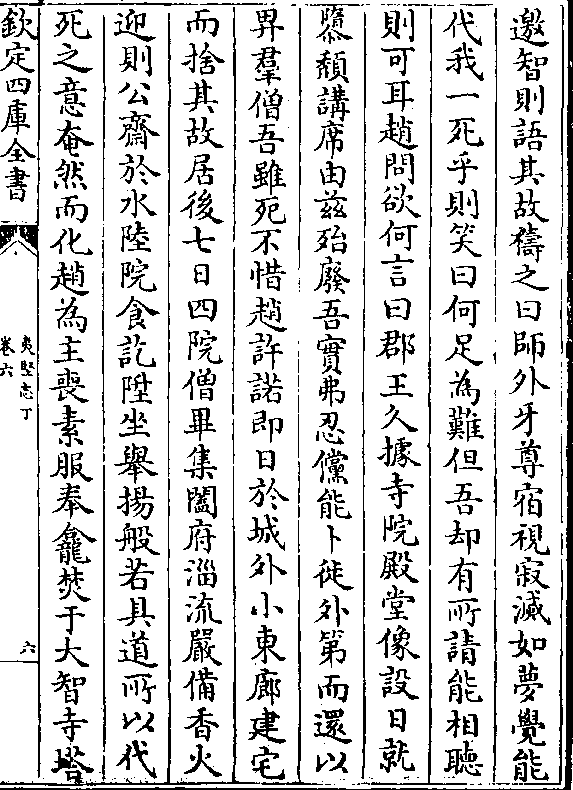 邀智則語其故禱之曰師外牙尊宿視寂滅如夢覺能
代我一死乎則笑曰何足為難但吾却有所請能相聽
則可耳趙問欲何言曰郡王久據寺院殿堂像設日就
隳頽講席由兹殆廢吾實弗忍儻能卜徙外第而還以
畀羣僧吾雖死不惜趙許諾即日於城外小東廊建宅
而捨其故居後七日四院僧畢集闔府淄流嚴備香火
迎則公齋於水陸院食訖陞坐舉揚般若具道所以代
死之意奄然而化趙為主喪素服奉龕焚于大智寺塔
欽定四庫全書
夷堅志丁
卷六
六